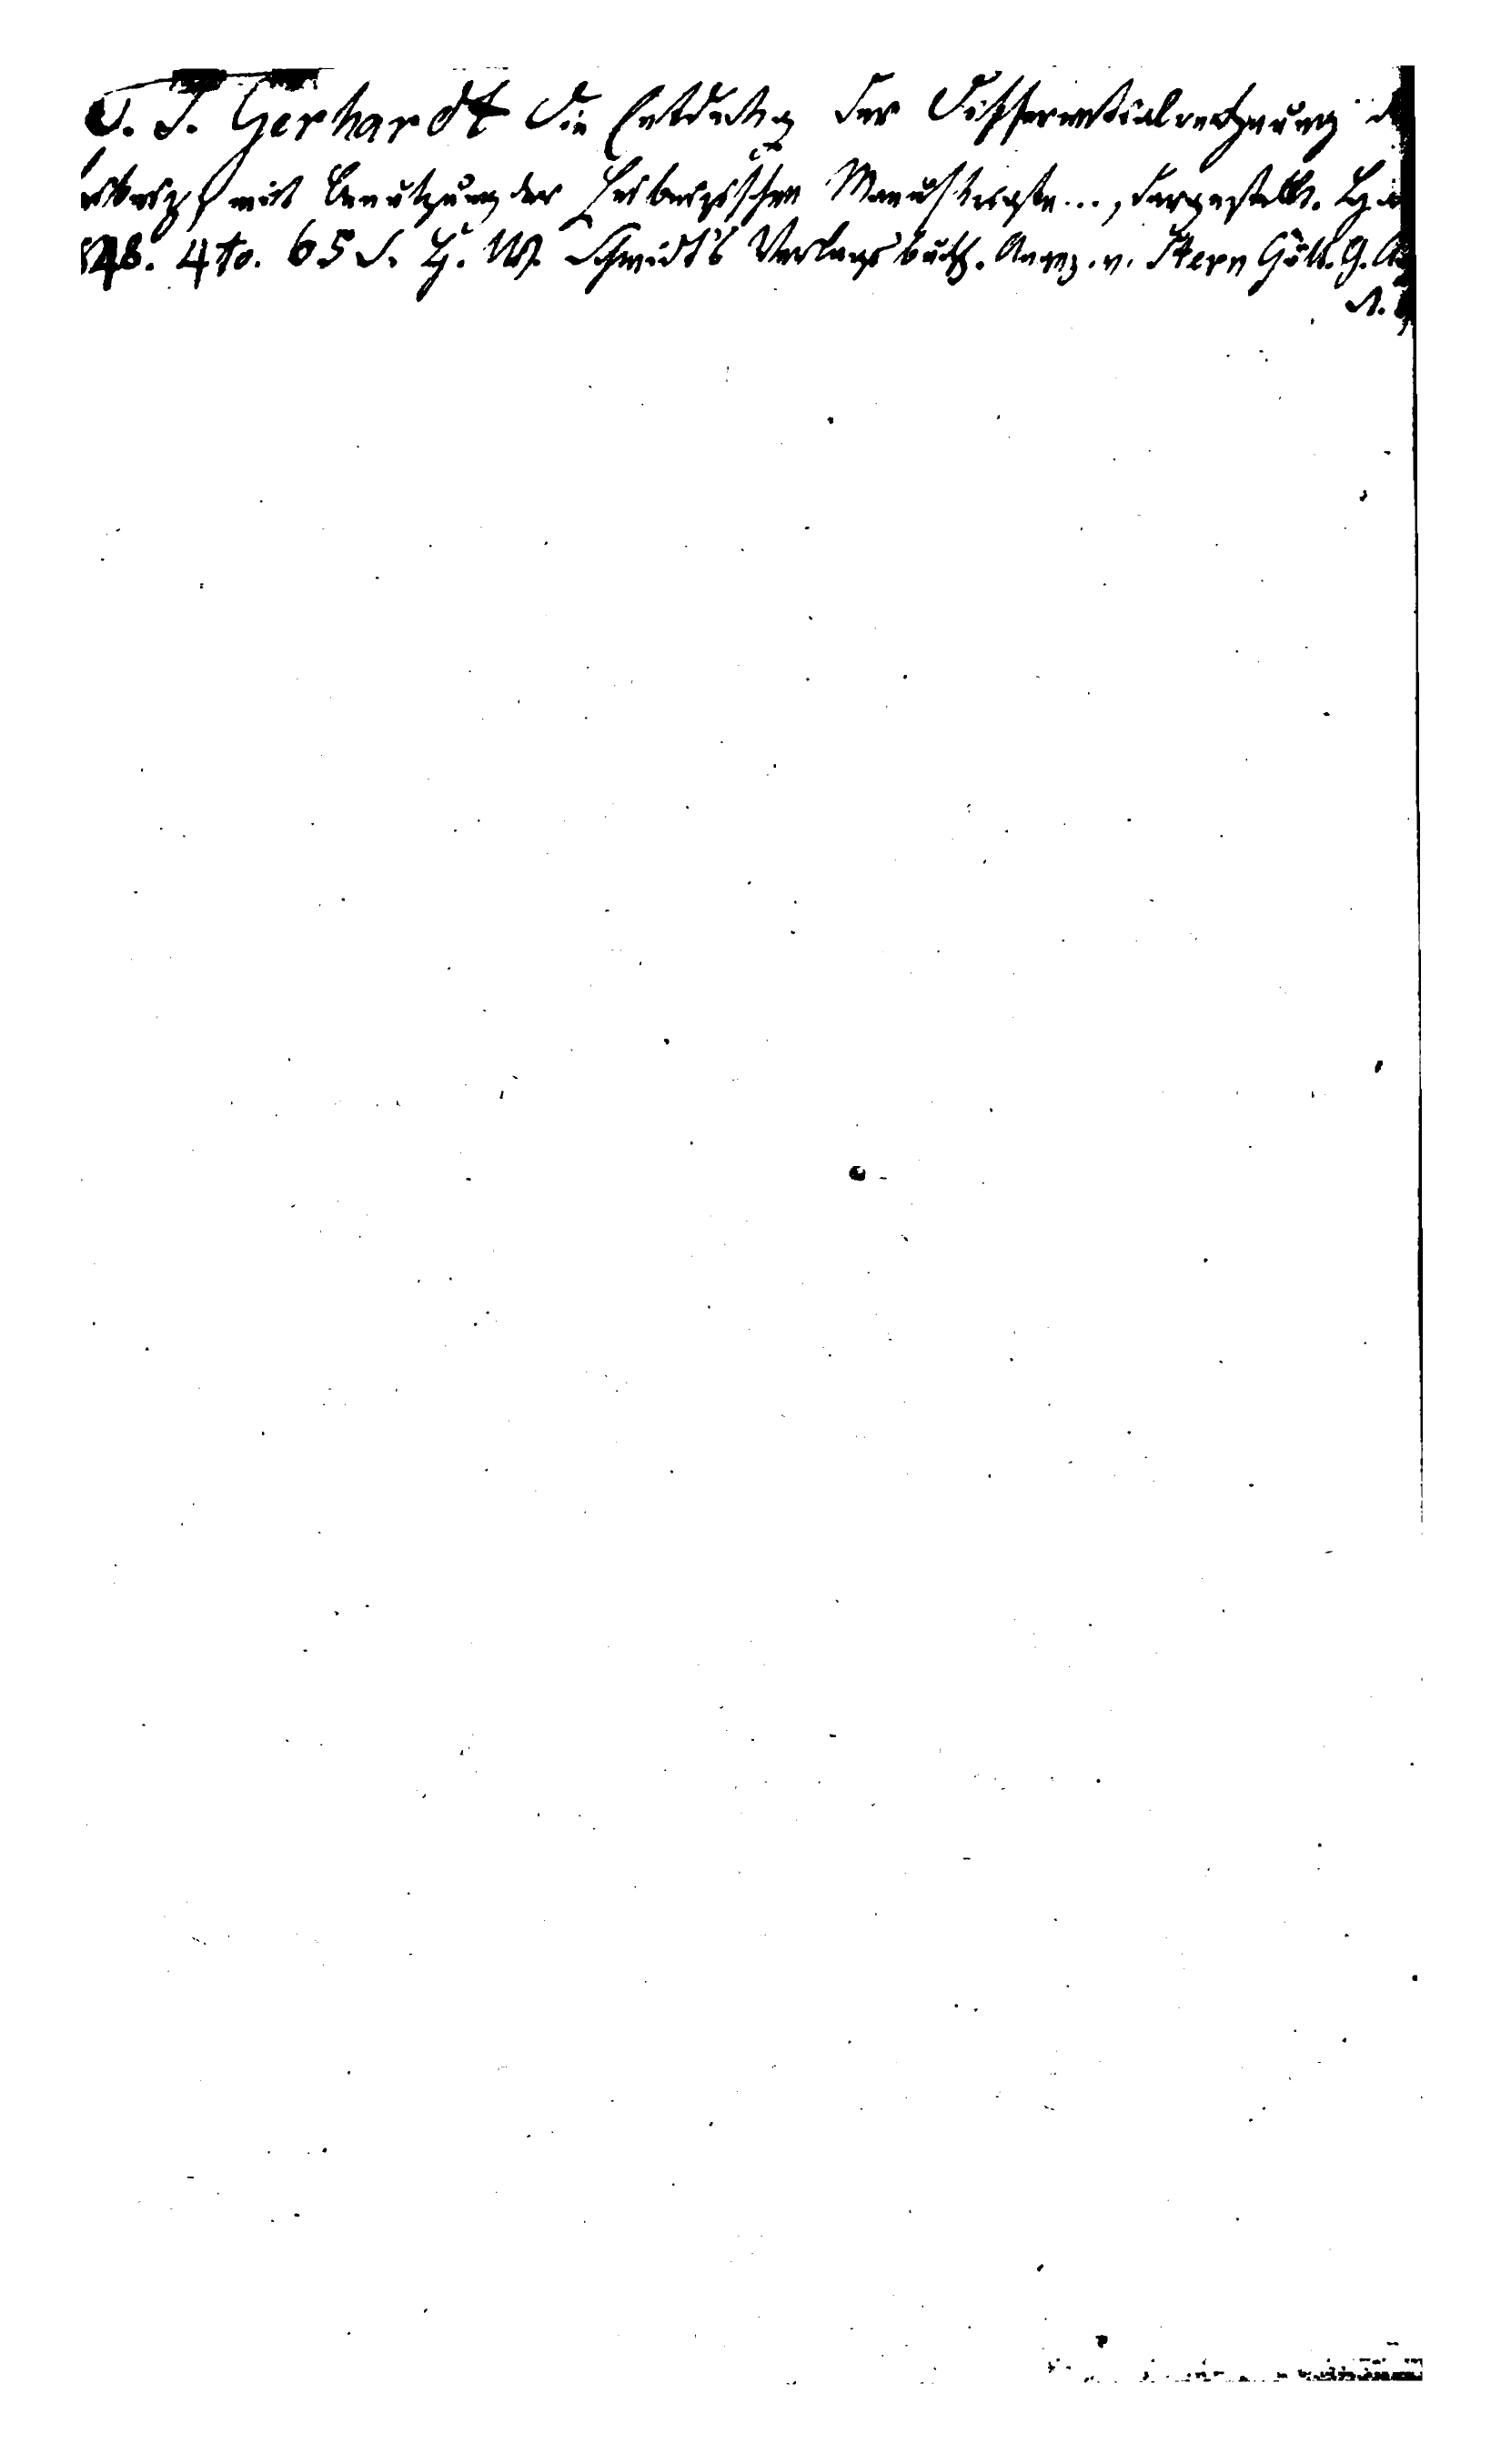 C. J. Gerhardt die Entdeckg der Differentialrechnung d
eibniz mit Benutzung der Leibnizischen Manuskripte..., dargestellt.
48. 4to. 65 S. H. W. Schmidt's Verlagsbuchh. Anz. v. Stern Gött. G. A